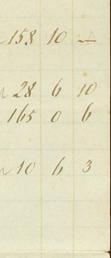 158 10 —
28 6 10
165 0 6
10 6 3